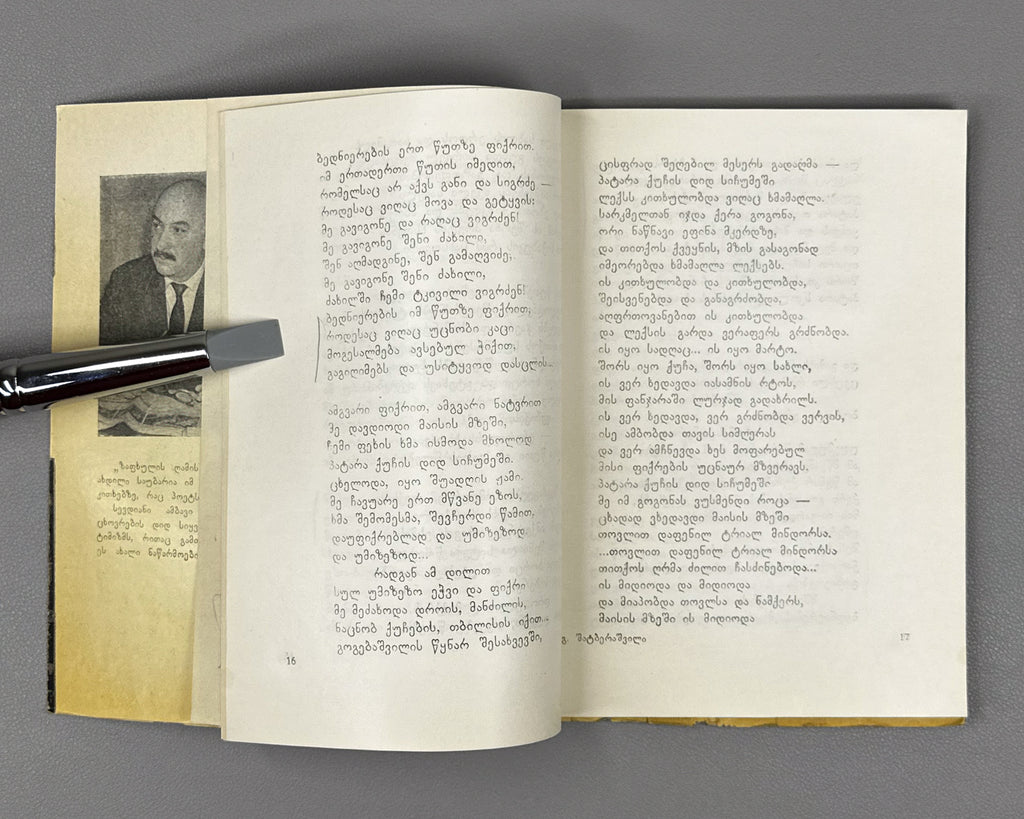 „ზაფხულის ღამის
ახდილი საუბარია იმ
კითხებზე, რაც პოეტს
სევდიანი ამბავი
ცხოვრების დიდ სიყვ
ტიმიზმს, რითაც გამო
ეს ახალი ნაწარმოები
ბედნიერების ერთ წუთზე ფიქრით.
იმ ერთადერთი წუთის იმედით,
რომელსაც არ აქვს განი და სიგრძე —
როდესაც ვიღაც მოვა და გეტყვის:
მე გავიგონე და რაღაც ვიგრძენ!
მე გავიგონე შენი ძახილი,
შენ აღმადგინე, შენ გამაღვიძე,
მე გავიგონე შენი ძახილი,
ძახილში ჩემი ტკივილი ვიგრძენ!
ბედნიერების იმ წუთზე ფიქრით,
როდესაც ვიღაც უცნობი კაცი
მოგესალმება ავსებულ ჭიქით,
გაგიღიმებს და უსიტყვოდ დასცლის...
ამგვარი ფიქრით, ამგვარი ნატვრით
მე დავდიოდი მაისის მზეში,
ჩემი ფეხის ხმა ისმოდა მხოლოდ
პატარა ქუჩის დიდ სიჩუმეში.
ცხელოდა, იყო შუადღის ჟამი.
მე ჩავუარე ერთ მწვანე ეზოს,
ხმა შემომესმა, შევჩერდი წამით.
დაუფიქრებლად და უმიზეზოდ
და უმიზეზოდ...
რადგან ამ დილით
სულ უმიზეზო ეჭვი და ფიქრი
მე მეძახოდა დროის, მანძილის,
ნაცნობ ქუჩების, თბილისის იქით...
გოგებაშვილის წყნარ შესახვევში,
16
ცისფრად შეღებილ მესერს გადაღმა —
პატარა ქუჩის დიდ სიჩუმეში
ლექსს კითხულობდა ვიღაც ხმამაღლა.
სარკმელთან იჯდა ქერა გოგონა,
ორი ნაწნავი ეფინა მკერდზე,
და თითქოს ქვეყნის, მზის გასაგონად
იმეორებდა ხმამაღლა ლექსებს.
ის კითხულობდა და კითხულობდა,
შეისვენებდა და განაგრძობდა,
აღფრთოვანებით ის კითხულობდა
და ლექსის გარდა ვერაფერს გრძნობდა.
ის იყო სადღაც... ის იყო მარტო.
შორს იყო ქუჩა, შორს იყო სახლი,
ის ვერ ხედავდა იასამნის რტოს,
მის ფანჯარაში ლურჯად გადახრილს.
ის ვერ ხედავდა, ვერ გრძნობდა ვერვის,
ისე ამბობდა თავის სიმღერას
და ვერ ამჩნევდა ხეს მოფარებულ
მისი ფიქრების უცნაურ მზვერავს.
პატარა ქუჩის დიდ სიჩუმეში
მე იმ გოგონას ვუსმენდი როცა —
ცხადად ვხედავდი მაისის მზეში
თოვლით დაფენილ ტრიალ მინდორსა.
...თოვლით დაფენილ ტრიალ მინდორსა
თითქოს ღრმა ძილით ჩასძინებოდა...
ის მიდიოდა და მიდიოდა
და მიაპობდა თოვლსა და ნამქერს,
მაისის მზეში ის მიდიოდა
გ. შატბერაშვილი
17